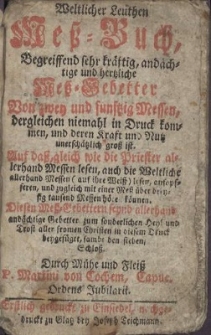 Weltlicher Leuthen
Meß-Buch,
Begreiffend sehr kräftig, andäch-
tige und hertzliche
Meß-Gebetter
Von zwey und funfftzig Messen,
dergleichen niemahl in Druck kom-
men, und deren Kraft und Nutz
unerschätzlich groß ist.
Auf daß gleich wie die Priester al-
lerhand Messen lesen, auch die Weltliche
allerhand Messen (auf ihre Weiß) lesen, aufopf-
feren, und zugleich mit einer Meß über dreys-
sig tausend Messen hören können.
Diesen Meß-Gebettern seynd allerhand
andächtige Gebetter, zum sonderlichen Heyl und
Trost aller frommen Christen in diesem Druck
beygefüget, sambt den sieben
Schloß.
Durch Mühe und Fleiß
P. Martini von Cochem, Capuc.
Ordens Jubilarii.
Erstlich gedruckt zu Einsiedel, nachge-
druckt zu Glatz bey Joseph Teichmann